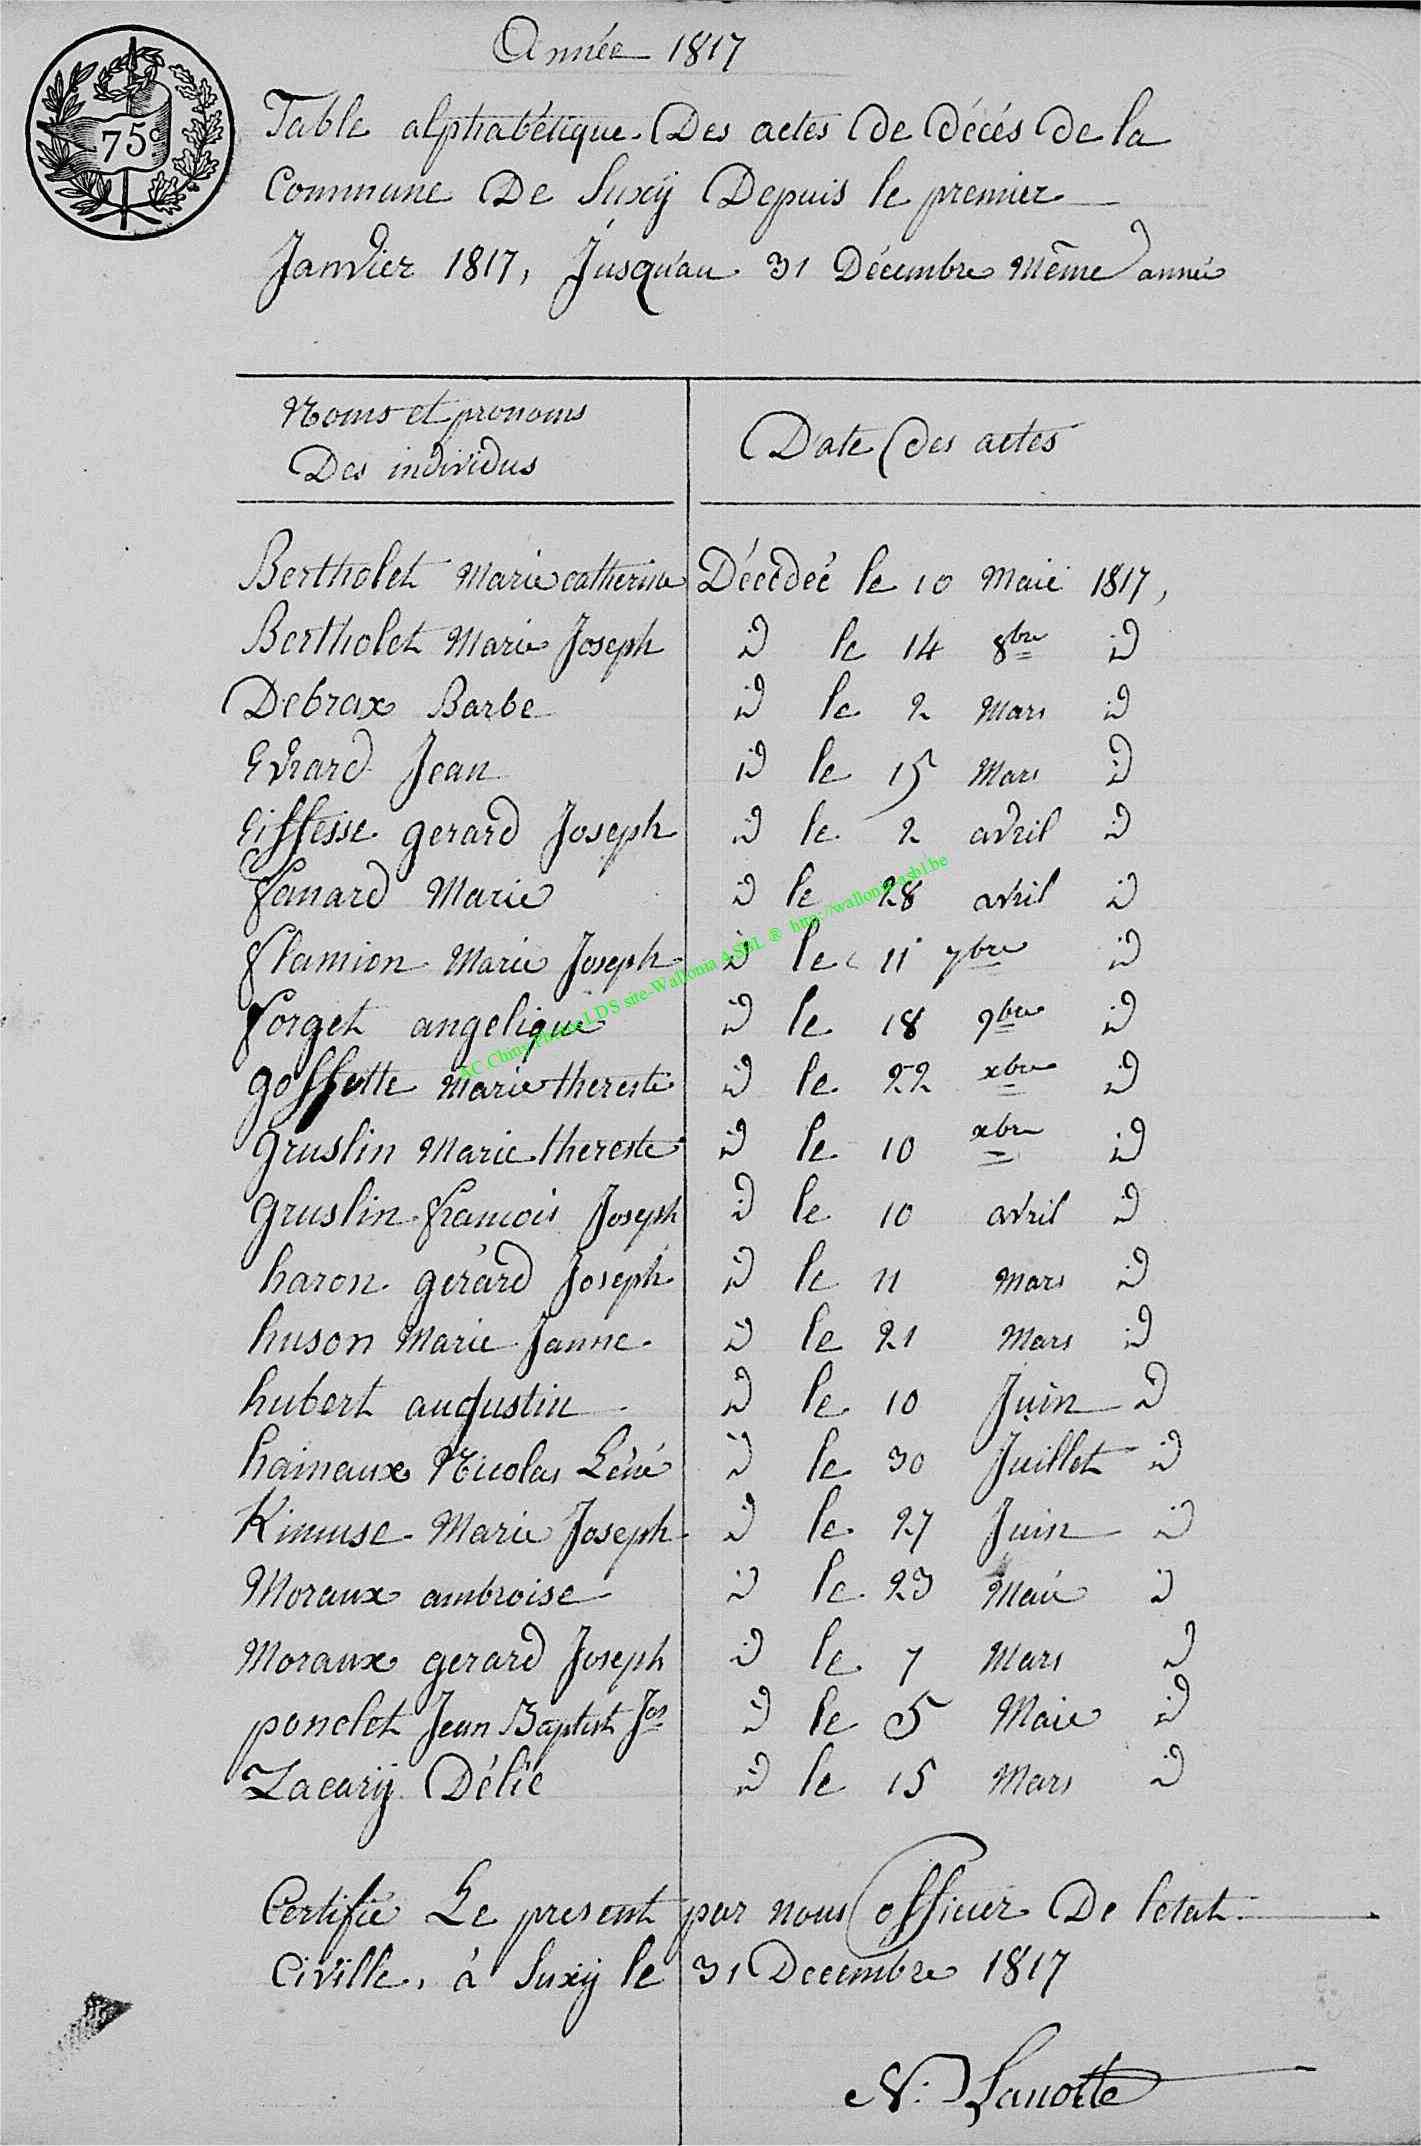 Année 1817
75c
Table alphabétique Des actes de décés de la
Commune De Suxÿ Depuis le premier
Janvier 1817, Jusqu'au 31 Décembre Même année
Noms et pronoms
Des individus
Date des actes
Bertholet Marie catherine Décédeé le 10 Maie 1817,
Bertholet Marie Joseph id le 14 8bre id
Debrax Barbe id le 2 Mars id
Evrard Jean id le 15 Mars id
Eiffesse gerard Joseph id le 2 avril id
fanard Marie id le 28 avril id
flamion Marie Joseph id le 11 7bre id
forget angelique id le 18 9bre id
goffette Marie thereste id le 22 xbre id
gruslin Marie thereste id le 10 xbre id
gruslin francois Joseph id le 10 avril id
haron gérard Joseph id le 11 Mars id
huson Marie Janne id le 21 Mars id
hubert augustin id le 10 Juin id
hainaux Nicolas id le 30 Juillet id
Kinuse Marie Joseph id le 27 Juin id
Moraux ambroise id le 23 Maie id
Moraux gerard Joseph id le 7 Mars id
poncelet Jean Baptist Jos id le 5 Maie id
Zacarÿ Délié id le 15 Mars id
Certifié Le present par nous officier De letat
Civille, à Suxÿ le 31 Decembre 1817
N. Lanotte
AC Chiny Photo LDS site-Wallonia ASBL ® http://wallonia-asbl.be